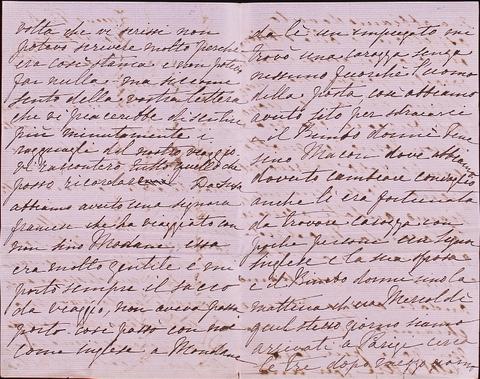 volta che vi scrissi non
potevo scrivere molto perchè
era così stanca e non potevo
far nulla - ma siccome
sento dalla vostra lettera
che vi piacerebbe di sentire
più minutamente i
ragguagli del nostro viaggio
vi racconterò tutto quello che
posso ricordare Da Susa
abbiamo avuto una signora
francese che ha viaggiato con
noi sino Modane, essa
era molto gentile e mi
portò sempre il sacco
da viaggio, non aveva passa
porto così passò con noi
come inglese a Modane
da lì un impiegato mi
trovò una carozza senza
nessuno fuorchè l'uomo
della posta così abbiamo
avuto sito per sdraiarsi
e il Bimbo dormì
sino Macon dove abbiamo
dovuto cambiare convoglio
anche lì era fortunata
da trovare carozza con
poche persone era
Inglese e la sua sposa
e il Bimbo dormì sino la
mattina che era Mercoldì
quel stesso giorno siamo
arrivati a Parigi
le tre dopo mezzo giorno